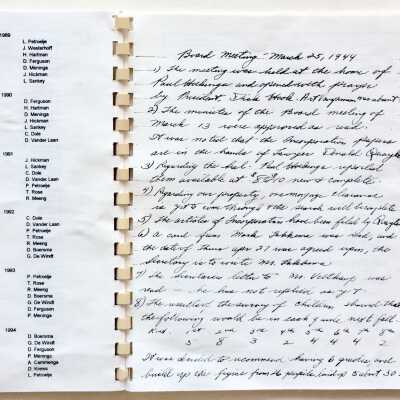 1989
L. Petroelje
J. Westerhoff
H. Hartman
D. Ferguson
D. Meninga
J. Hickman
L. Sankey
1990
D. Ferguson
H. Hartman
D. Meninga
J. Hickman
L. Sankey
C. Dale
D. Vander Laan
1991
J. Hickman
L. Sankey
C. Dale
D. Vander Laan
P. Petroelje
T. Rose
R. Meeng
1992
C. Dale
D. Vander Laan
P. Petroelje
T. Rose
R. Meeng
D. Boersma
G. De Windt
1993
P. Petroelje
T. Rose
R. Meeng
D. Boersma
G. De Windt
D. Ferguson
P. Meninga
1994
D. Boersma
G. De Windt
D. Ferguson
P. Meninga
A. Cammenga
D. Kreiss
L. Petroelje
Board Meeting - March 25, 1944
1) The meeting was held at the home of
Paul and opened with prayer
by President, Dick was absent
2) The minutes of the Board meeting of
March 13 were approved as read.
It was noted that the Incorporation papers
are in the hands of lawyer Donald
3) Regarding the : Paul reported
them available at new & complete.
4) Regarding our property,
is yet to come through & the search will be complete
5) The articles of Incorporation have been filed by
6) A card from Mark was read, and
the date of Thurs Apr 27 was agreed upon, the
Secretary is to write Mr.
7) The Secretaries letter to Mr. was
read - he has not replied as yet
8) The results of the survey of Children showed that
the following would be in each grade next fall
Kind. 1st 2nd 3rd 4th 5th 6th 7th 8th
5 8 3 2 4 4 4 2
It was decided to recommend having 6 grades, and
build up the figure from the people, land up about 30